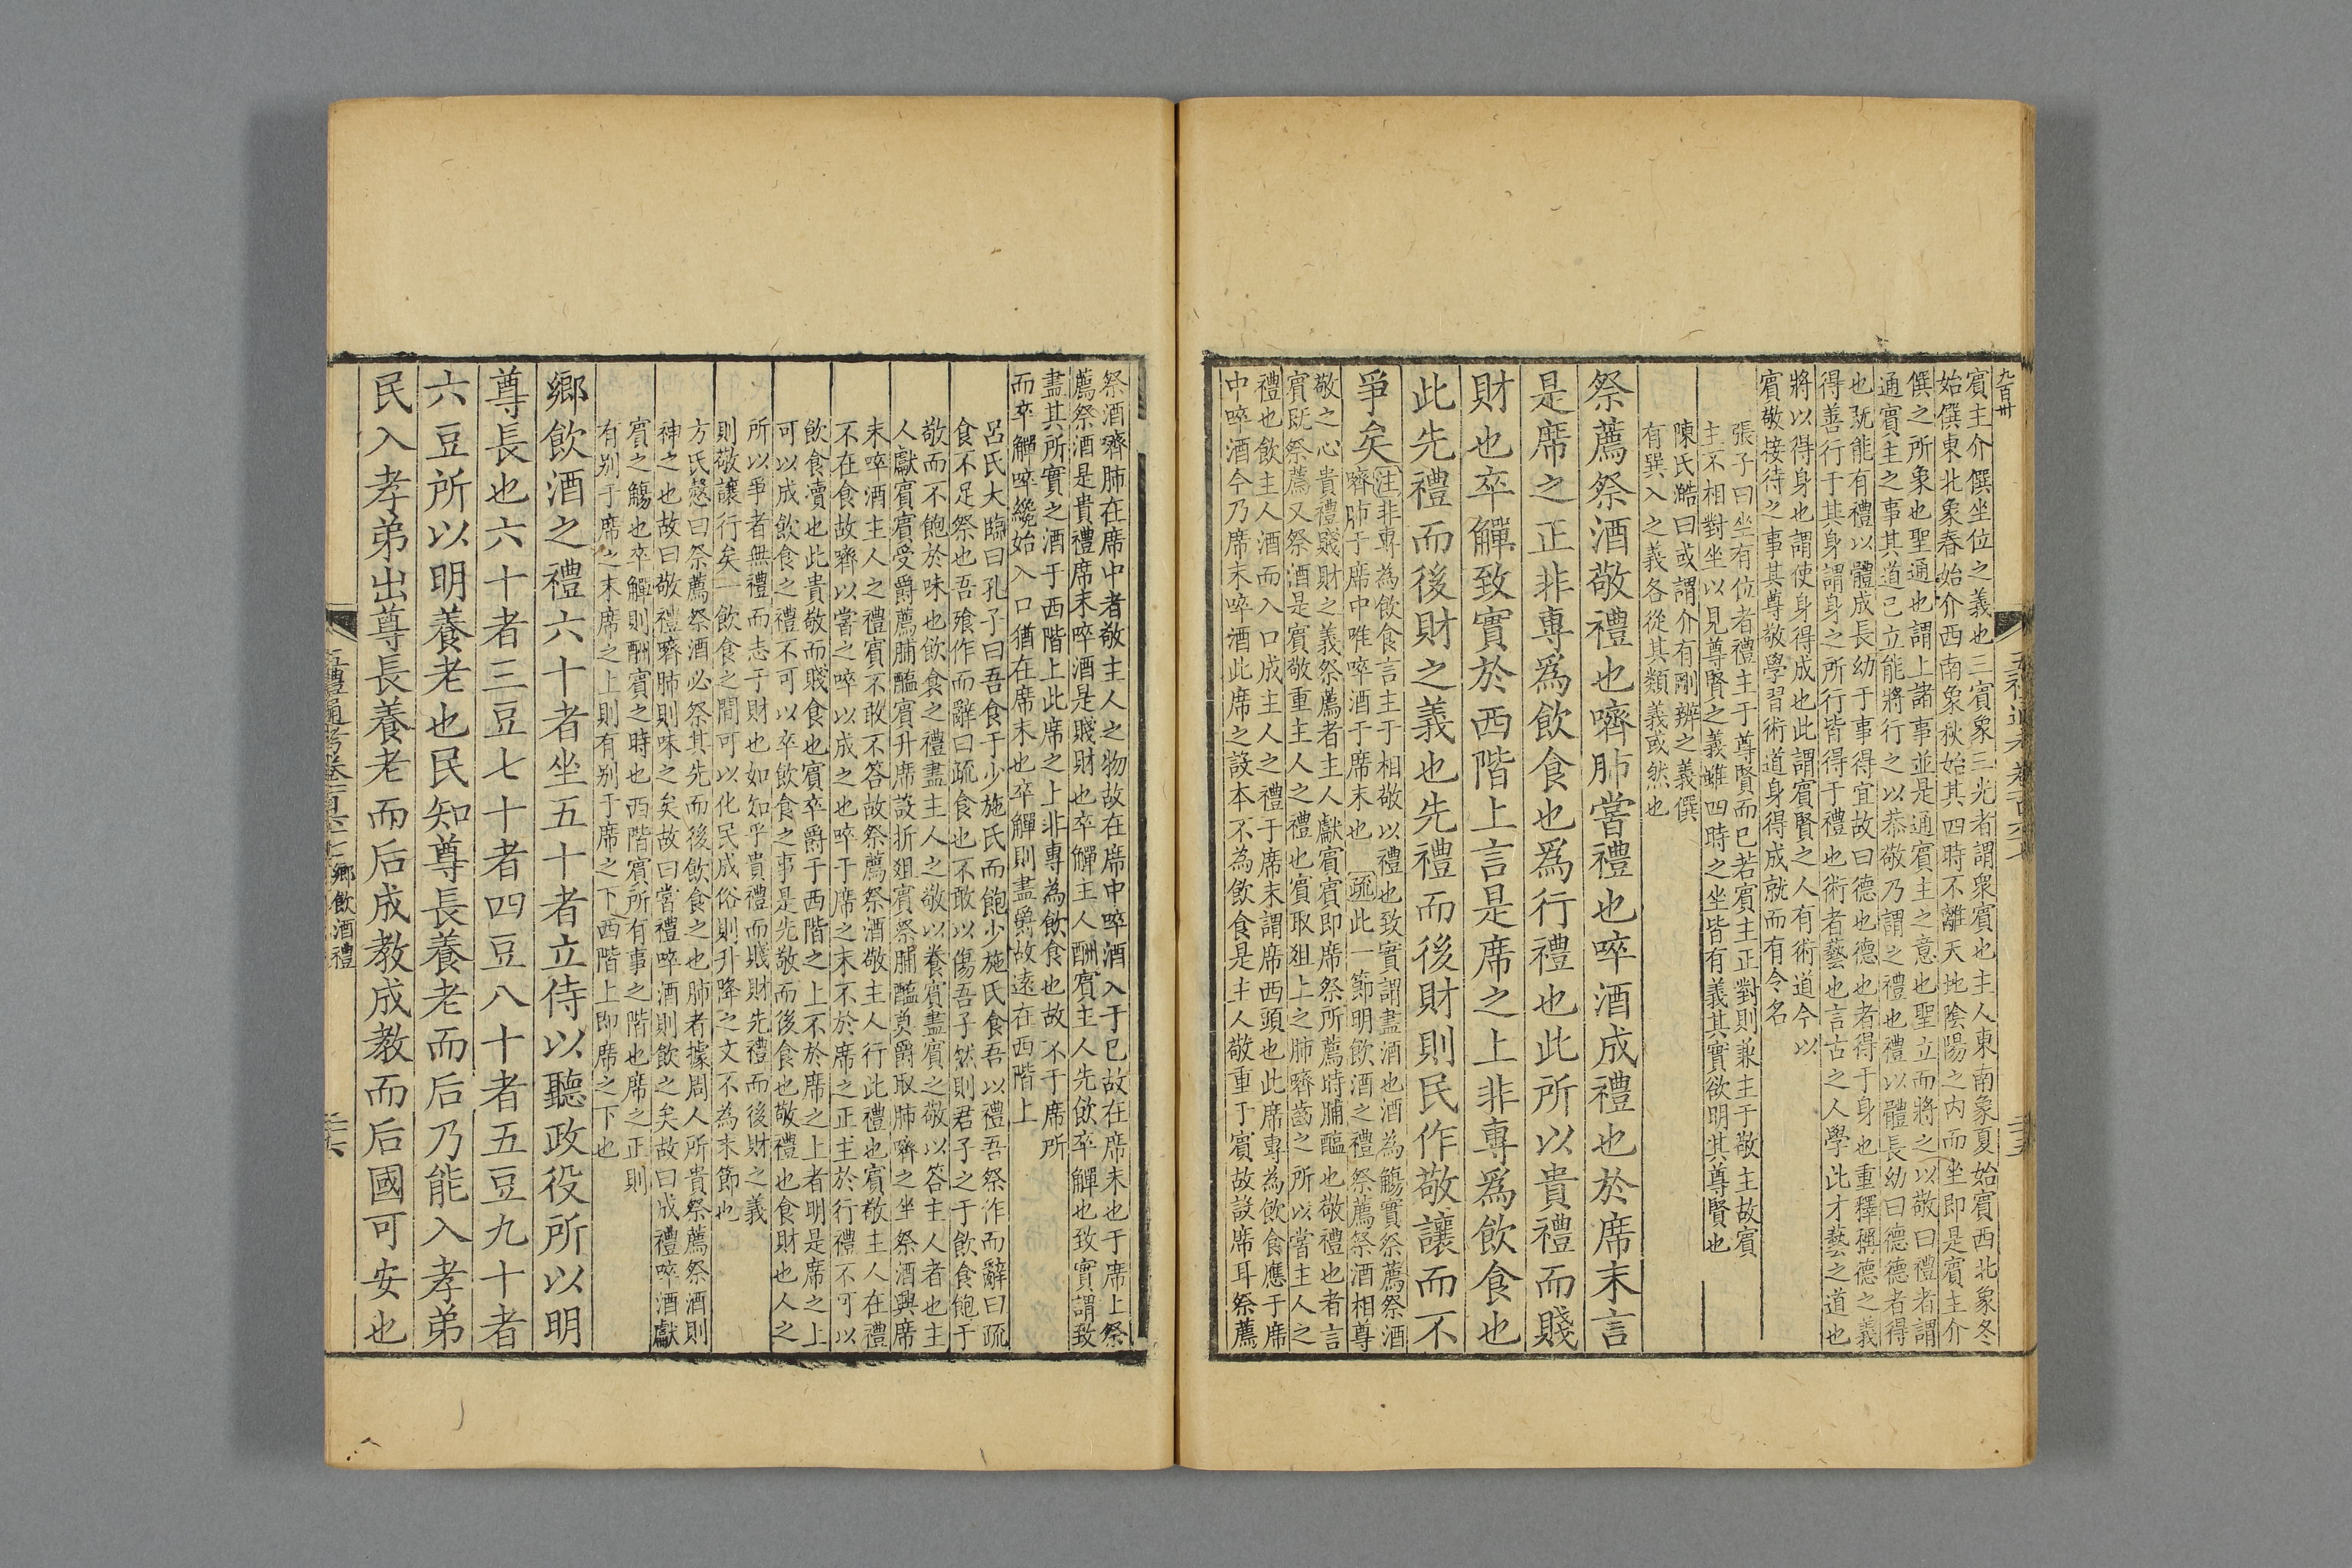 九百卅
賓主介僎坐位之義也三賓象三光者謂衆賓也主人東南象夏始賓西北象冬
始僎東北象春始介西南象秋始其四時不離天地陰陽之内而坐即是賓主介
僎之所象也聖通也謂上諸事並是通賓主之意也聖立而將之以敬曰禮者謂
通賓主之事其道已立能將行之以恭敬乃謂之禮也禮以體長幼曰德德者得
也旣能有禮以體成長幼于事得宜故曰德也德也者得于身也重釋稱德之義
得善行于其身謂身之所行皆得于禮也術者藝也言古之人學此才藝之道也
將以得身也謂使身得成也此謂賓賢之人有術道今以
賓敬接待之事其尊敬學習術道身得成就而有令名
張子曰坐有位者禮主于尊賢而已若賓主正對則兼主于敬主故賓
主不相對坐以見尊賢之義雖四時之坐皆有義其實欲明其尊賢也
陳氏澔曰或謂介有剛辨之義僎
有巽入之義各從其類義或然也
祭薦祭酒敬禮也嚌肺嘗禮也啐酒成禮也於席末言
是席之正非專爲飲食也爲行禮也此所以貴禮而賤
財也卒觶致實於西階上言是席之上非專爲飲食也
此先禮而後財之義也先禮而後財則民作敬讓而不
爭矣
注非專為飲食言主于相敬以禮也致實謂盡酒也酒為觴實祭薦祭酒
嚌肺于席中唯啐酒于席末也 疏此一節明飲酒之禮祭薦祭酒相尊
敬之心貴禮賤財之義祭薦者主人獻賓賓即席祭所薦時脯醢也敬禮也者言
賓旣祭薦又祭酒是賓敬重主人之禮也賓取俎上之肺嚌齒之所以嘗主人之
禮也飲主人酒而入口成主人之禮于席末謂席西頭也此席專為飲食應于席
中啐酒今乃席末啐酒此席之設本不為飲食是主人敬重于賓故設席耳祭薦
祭酒嚌肺在席中者敬主人之物故在席中啐酒入于已故在席末也于席上祭
薦祭酒是貴禮席末啐酒是賤財也卒觶主人酬賓主人先飲卒觶也致實謂致
盡其所實之酒于西階上此席之上非專為飲食也故不于席所
而卒觶啐纔始入口猶在席末也卒觶則盡爵故遠在西階上
呂氏大臨曰孔子曰吾食于少施氏而飽少施氏食吾以禮吾祭作而辭曰疏
食不足祭也吾飱作而辭曰疏食也不敢以傷吾子然則君子之于飲食飽于
敬而不飽於味也飲食之禮盡主人之敬以養賓盡賓之敬以答主人者也主
人獻賓賓受爵薦脯醢賓升席設折俎賓祭脯醢奠爵取肺嚌之坐祭酒興席
末啐酒主人之禮賓不敢不答故祭薦祭酒敬主人行此禮也賓敬主人在禮
不在食故嚌以嘗之啐以成之也啐于席之末不於席之正主於行禮不可以
飲食凟也此貴敬而賤食也賓卒爵于西階之上不於席之上者明是席之上
可以成飲食之禮不可以卒飲食之事是先敬而後食也敬禮也食財也人之
所以爭者無禮而志于財也如知乎貴禮而賤財先禮而後財之義
則敬讓行矣一飲食之間可以化民成俗則升降之文不為末節也
方氏慤曰祭薦祭酒必祭其先而後飲食之也肺者據周人所貴祭薦祭酒則
神之也故曰敬禮嚌肺則味之矣故曰嘗禮啐酒則飲之矣故曰成禮啐酒獻
賓之觴也卒觶則酬賓之時也西階賓所有事之階也席之正則
有别于席之末席之上則有别于席之下西階上即席之下也
鄉飲酒之禮六十者坐五十者立侍以聽政役所以明
尊長也六十者三豆七十者四豆八十者五豆九十者
六豆所以明養老也民知尊長養老而后乃能入孝弟
民入孝弟出尊長養老而后成教成教而后國可安也
鄉飲酒禮